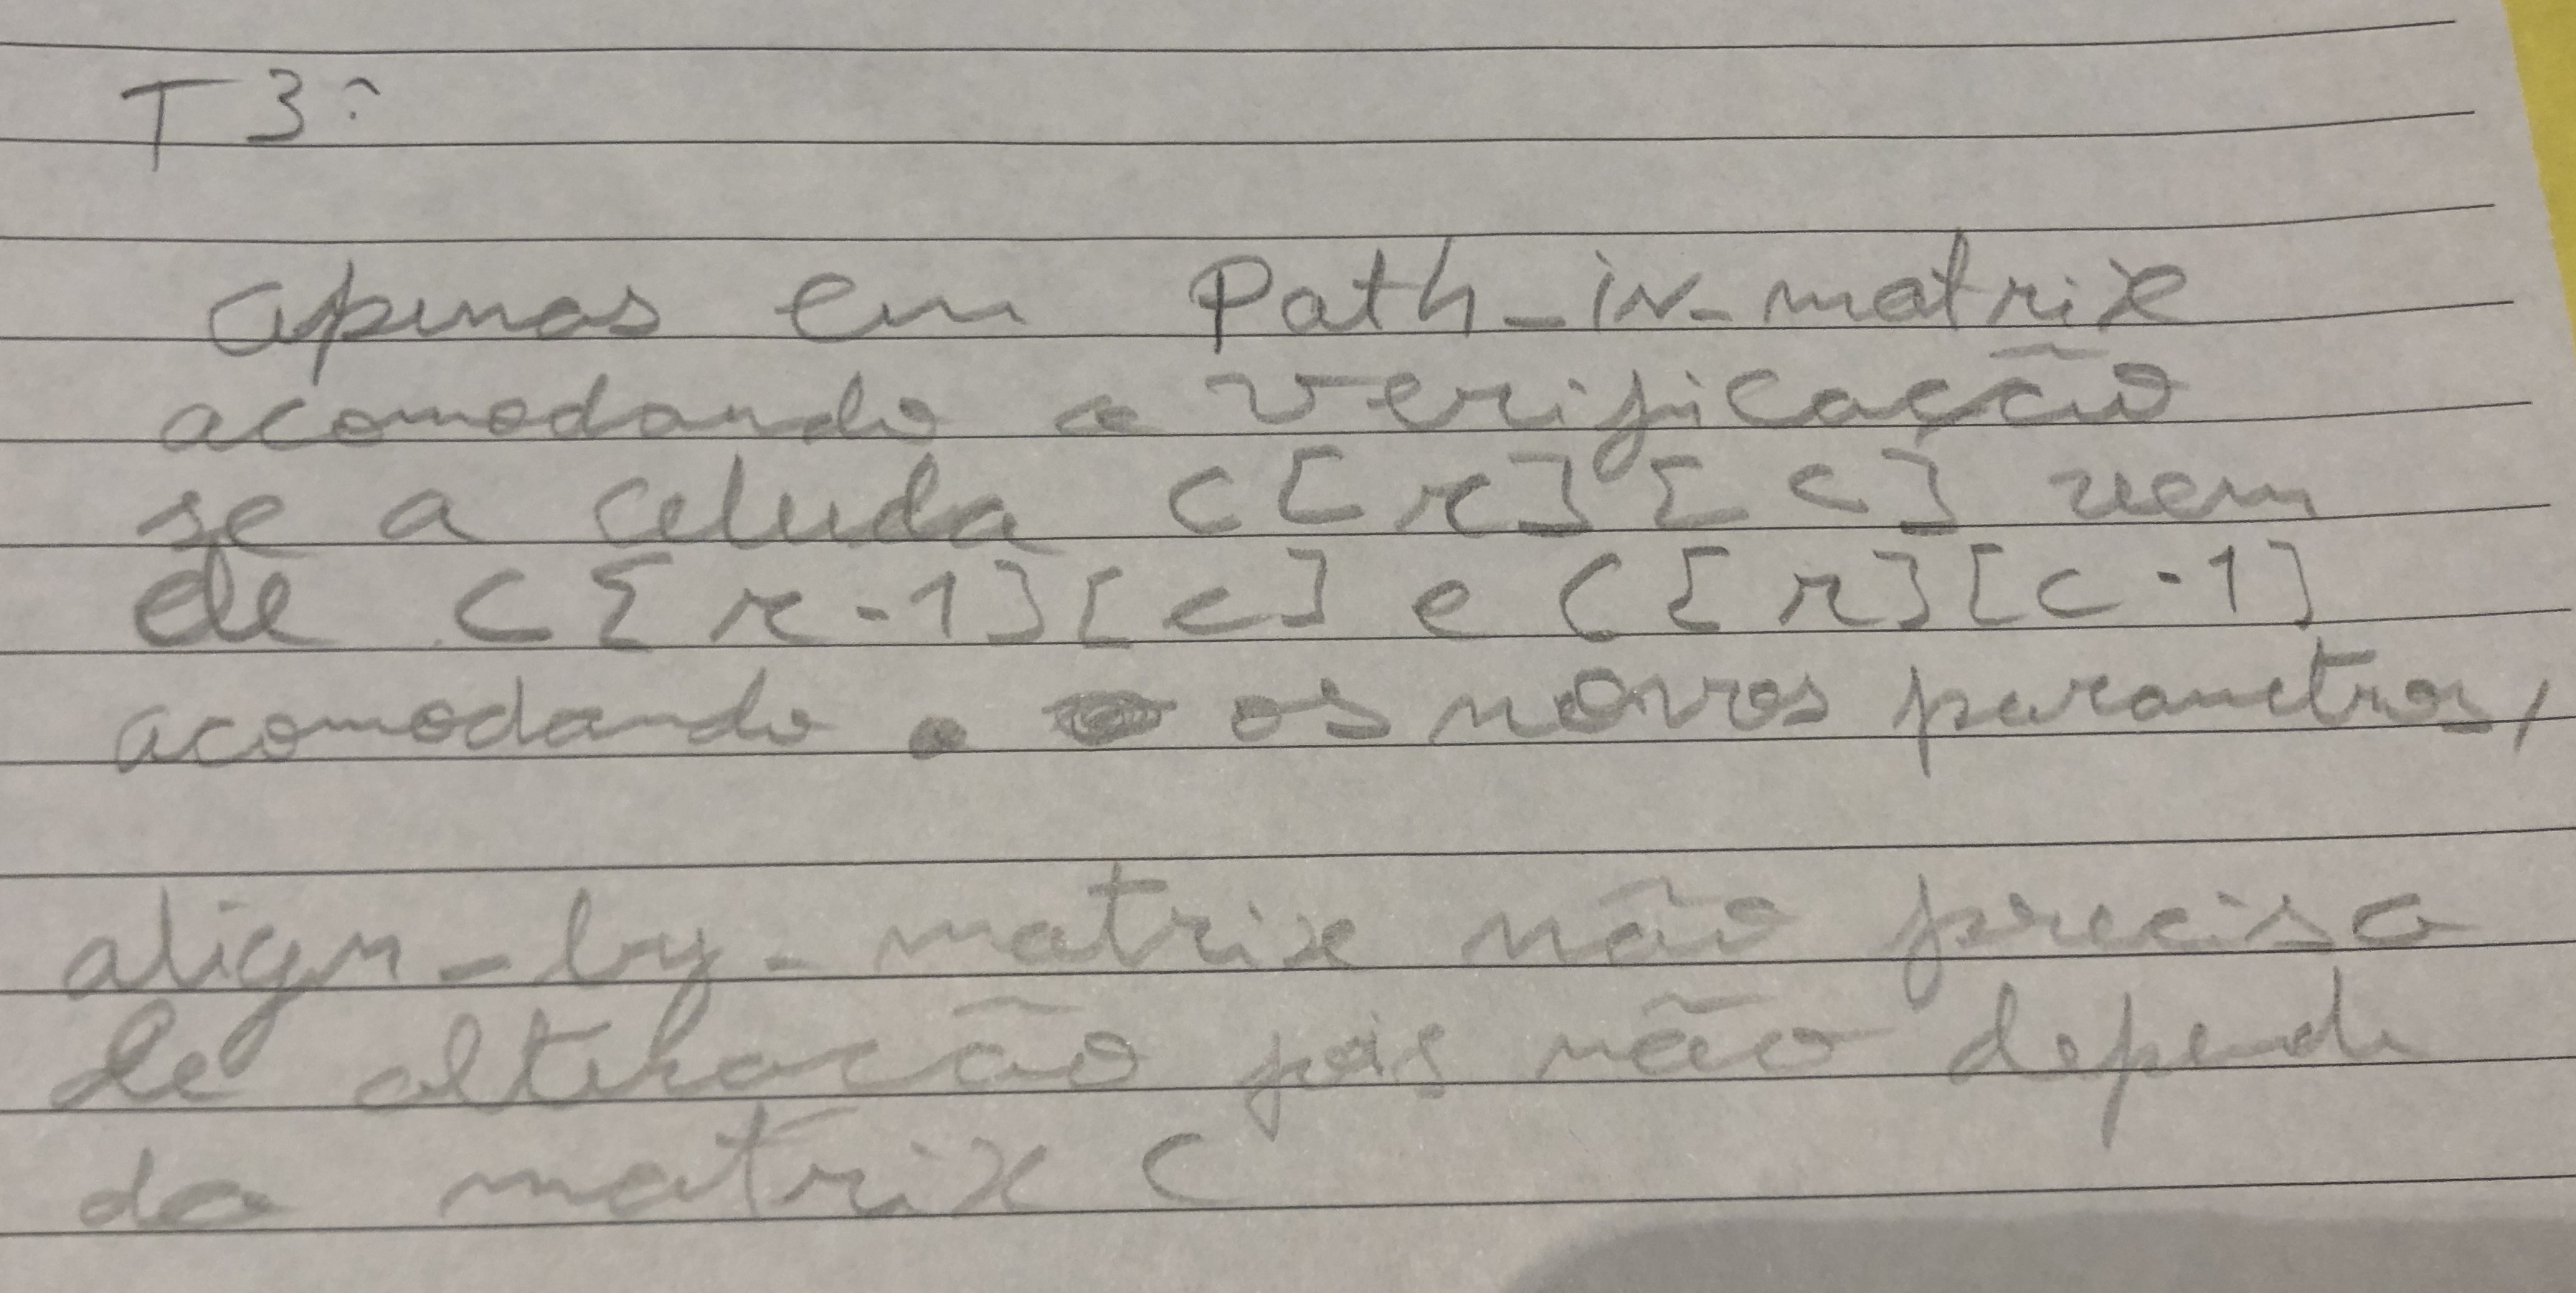 T3:
apenas em Path_in_matrix
acomodando a verificação
se a celula C[r][c] vem
de C[r-1][c] e C[r][c-1]
acomodando os novos parametros,
align_by_matrix não precisa
de alteração pois não depende
da matrix C